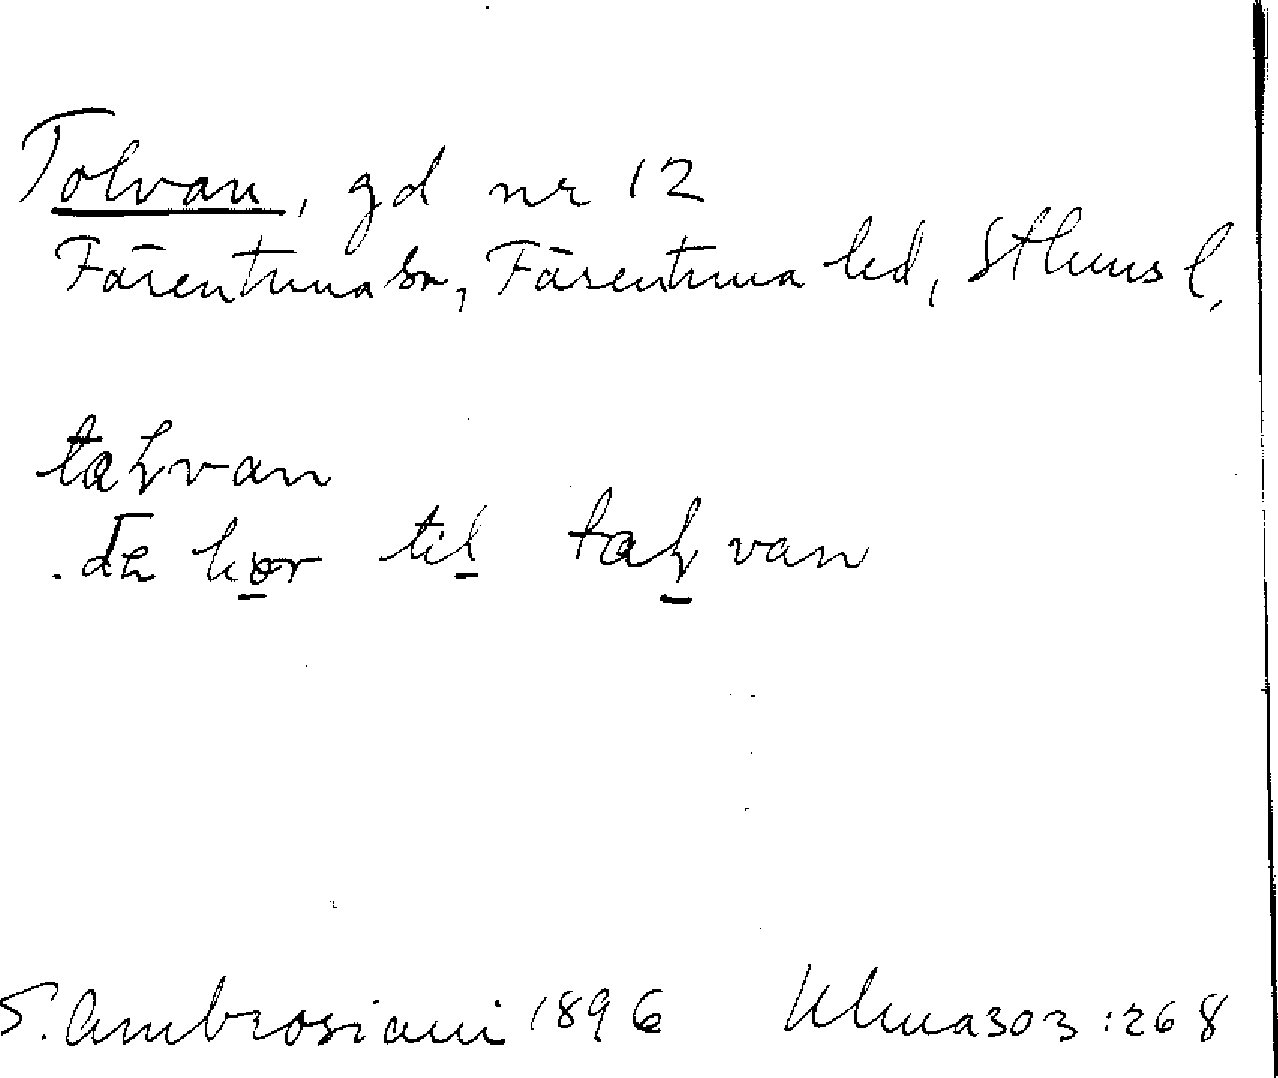 Tolvan, gd nr 12
Färentuna sn, Färentuna hd, Sthms l.
taɫvan
. de kør til taɫvan
S. Ambrosiani 1896 Ulma 303:268